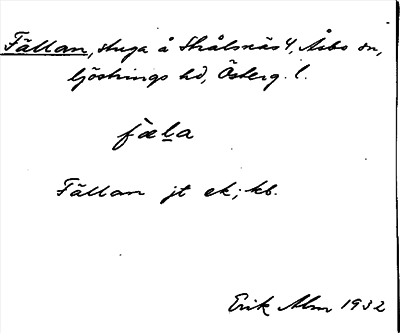 Fällan, stuga å Strålsnäs 4, Åsbo sn,
Göstrings hd, Österg. l.
fæ̀l̠a
Fällan jt ek; kb.
Erik Alm 1932